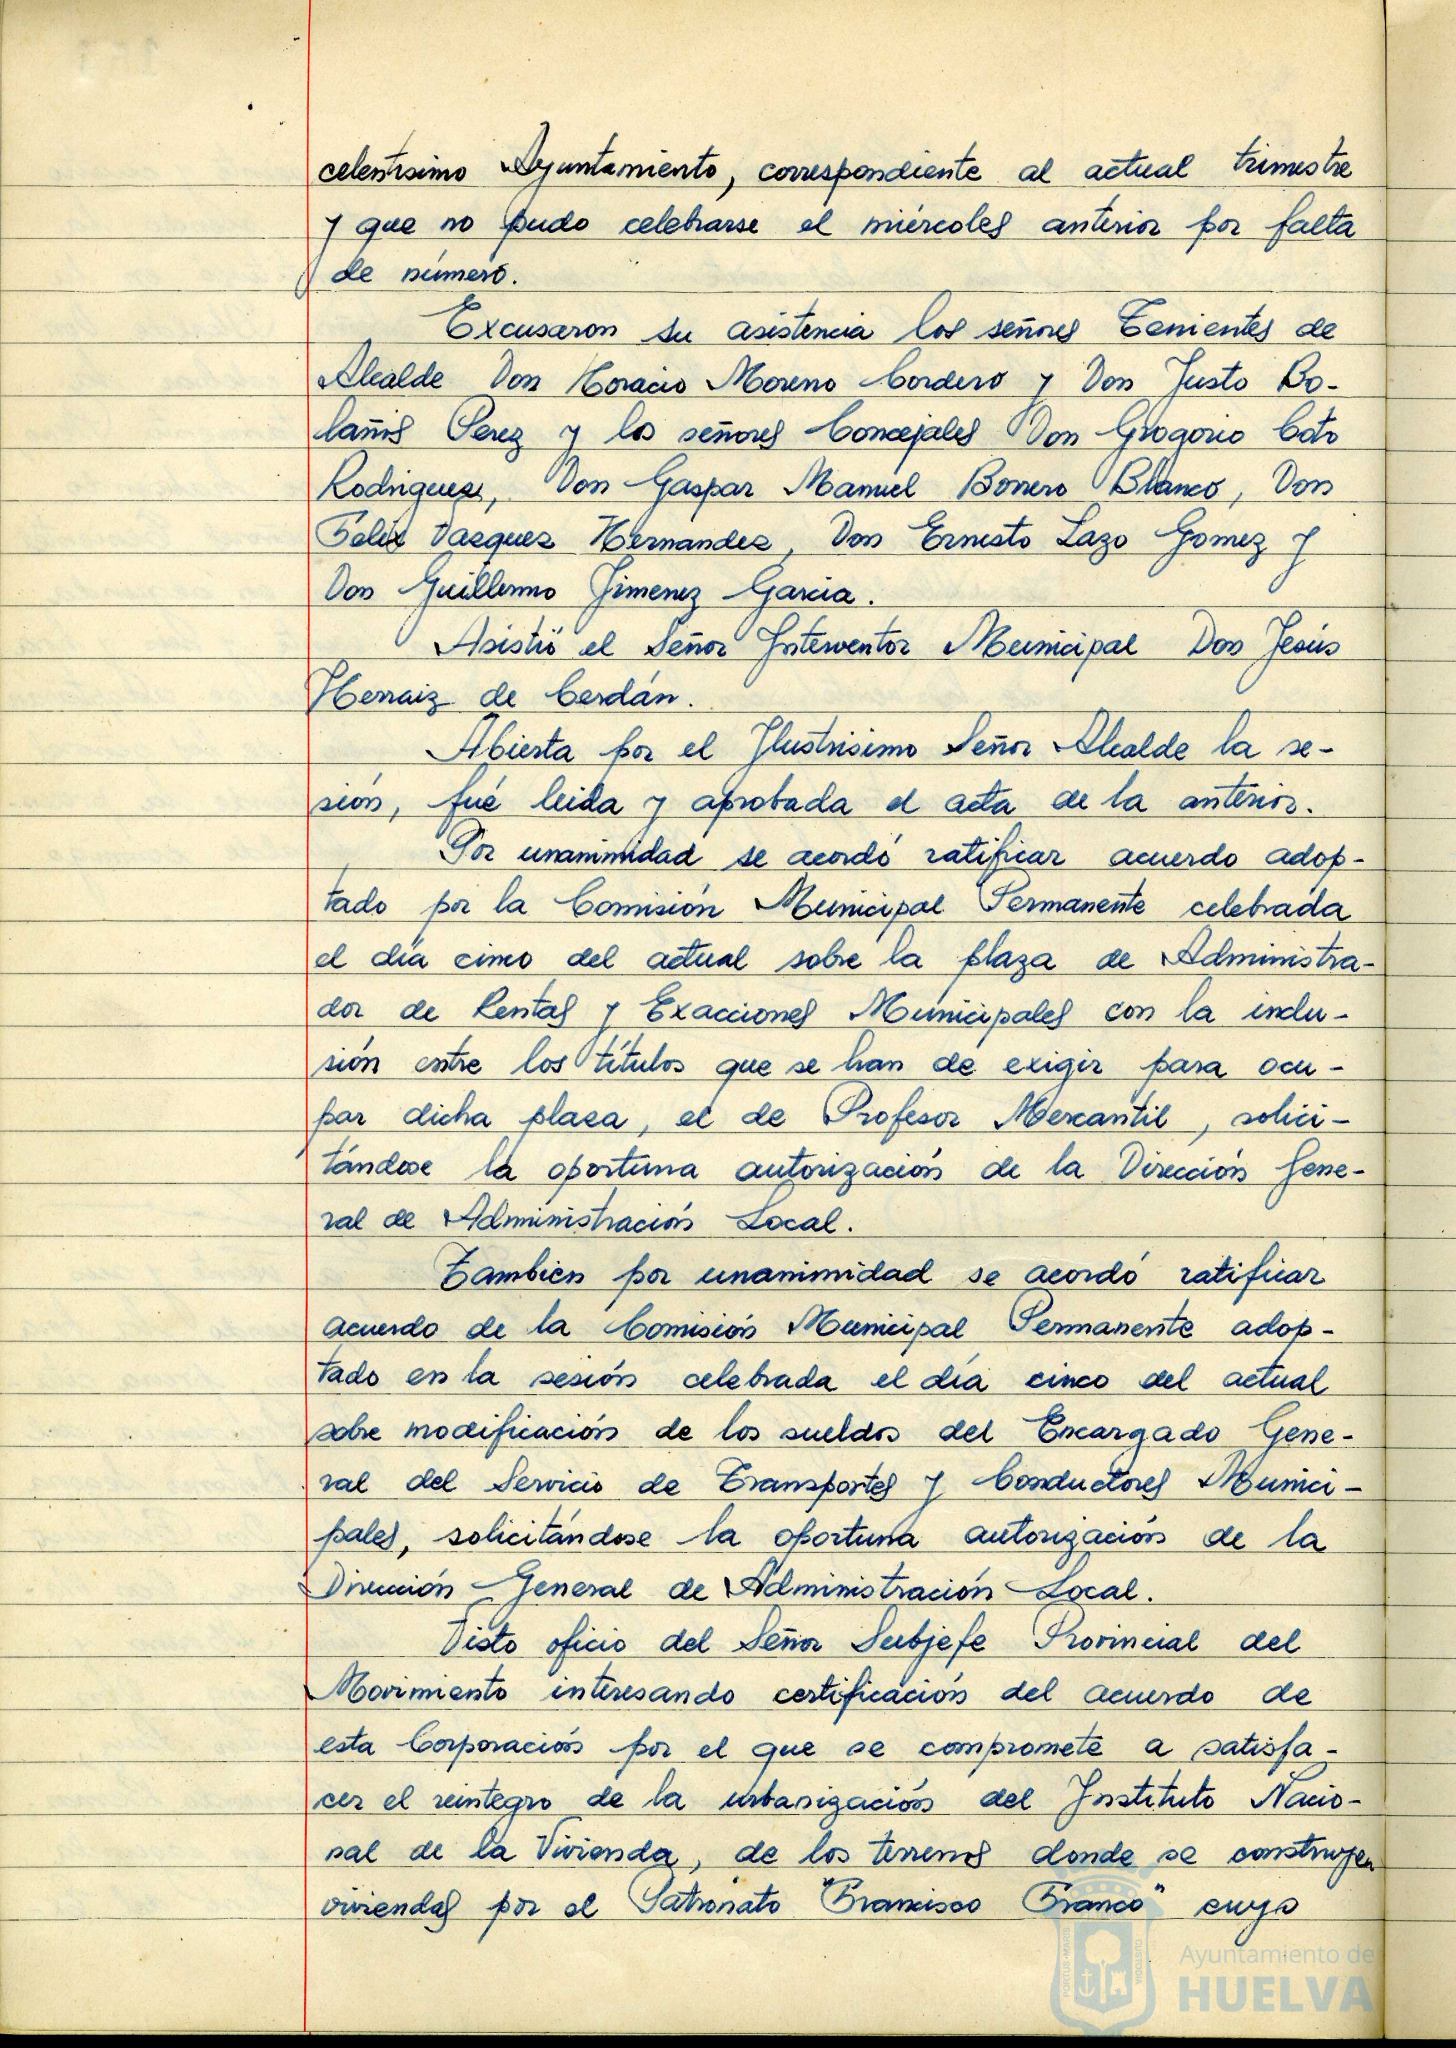 celentisimo Ayuntamiento, correspondiente al actual trimestre
y que no pudo celebrarse el miércoles anterior por falta
de número.
Excusaron su asistencia los señores Tenientes de
Alcalde Don Horacio Moreno Cordero y Don Justo Bo-
lañis Perez y los señores Concejales Don Grogorio Coto
Rodriguez, Don Gaspar Manuel Borrero Blanco, Don
Felix Vazquez Hernandez, Don Ernesto Lazo Gomez y
Don Guillermo Jimenez Garcia.
Asistió el Señor Interventor Municipal Don Jesús
Herraiz de Cerdán.
Abierta por el Ilustrisimo Señor Alcalde la se-
sión, fué leida y aprobada el acta de la anterior.
Por unanimidad se acordó ratificar acuerdo adop-
tado por la Comisión Municipal Permanente celebrada
el día cinco del actual sobre la plaza de Administra-
dor de Rentas y Exacciones Municipales con la inclu-
sión entre los títulos que se han de exigir para ocu-
par dicha plaza, el de Profesor Mercantil, solici-
tándose la oportuna autorización de la Dirección Gene-
ral de Administración Local.
Tambien por unanimidad se acordó ratificar
acuerdo de la Comisión Municipal Permanente adop-
tado en la sesión celebrada el día cinco del actual
sobre modificación de los sueldos del Encargado Gene-
ral del Servicio de Transportes y Conductores Munici-
pales, solicitándose la oportuna autorización de la
Dirección General de Administración Local.
Visto oficio del Señor Subjefe Provincial del
Movimiento interesando certificación del acuerdo de
esta Corporación por el que se compromete a satisfa-
cer el reintegro de la urbanización del Instituto Nacio-
nal de la Vivienda, de los terrenos donde se construyen
viviendas por el Patronato "Francisco Franco" cuyo
Ayuntamiento de
HUELVA